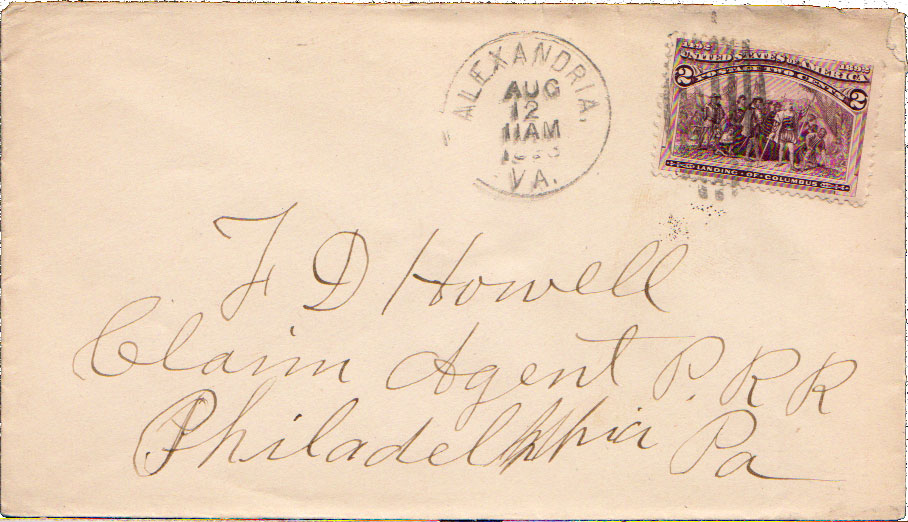 ALEXANDRIA,
AUG
12
11AM
VA.
1492 1892
UNITED STATES OF AMERICA
2 POSTAGE TWO CENTS 2
LANDING OF COLUMBUS
F D Howell
Claim Agent P. R R
Philadelphia Pa